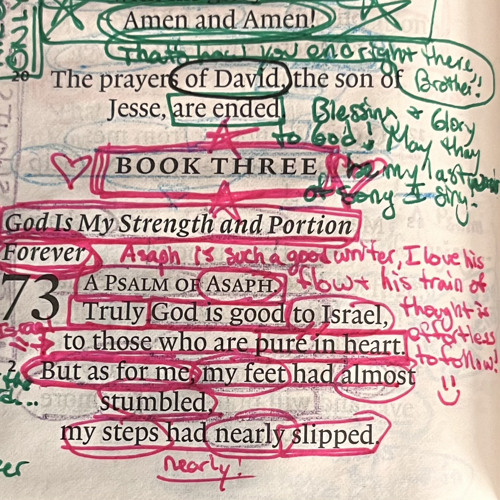 Amen and Amen!
That's how you end right there
Brother!!
20 The prayers of David, the son of
Jesse, are ended.
Blessing & Glory
to God! May they
be my last
of song I sing!
BOOK THREE
God Is My Strength and Portion
Forever
Asaph is such a good writer, I love his
flow & his train of
thought is
effortless
to follow!
73 A PSALM OF ASAPH.
Truly God is good to Israel,
to those who are pure in heart.
2 But as for me, my feet had almost
stumbled,
my steps had nearly slipped.
nearly!